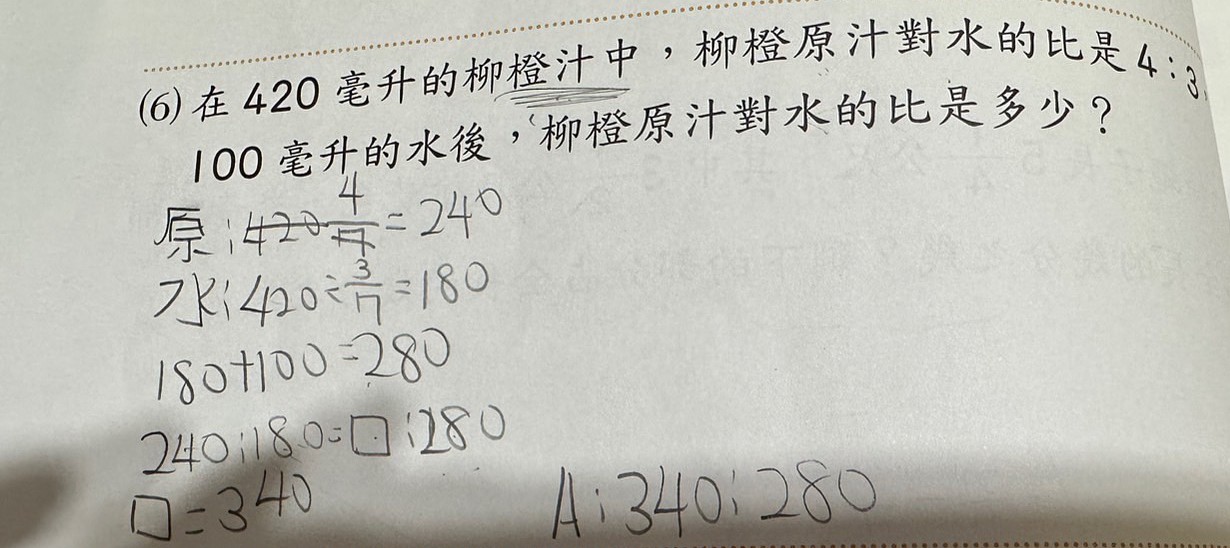 (6) 在 420 毫升的柳橙汁中，柳橙原汁對水的比是 4：3，
100 毫升的水後，柳橙原汁對水的比是多少？
原：420 4/7 = 240
水：420 ÷ 3/7 = 180
180+100=280
240：180=□：280
□=340
A：340：280